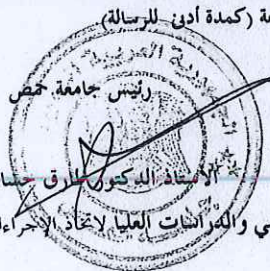 ـة (كمدة أدنى للرسالة)
رئيس جامعة حمص
الأستاذ الدكتور طارق حسا
ـي والدراسات العليا لاتخاذ الإجراءا